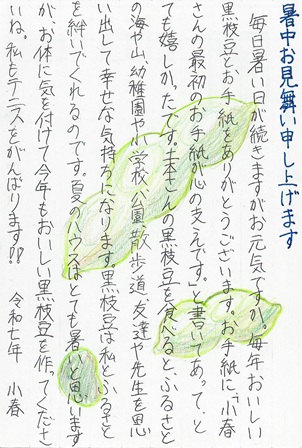 暑中お見舞い申し上げます
毎日暑い日が続きますがお元気ですか。毎年おいしい
黒枝豆とお手紙をありがとうございます。お手紙に「小春
さんの最初のお手紙が心の支えです。」と書いてあって、と
ても嬉しかったです。土本さんの黒枝豆を食べると、ふるさと
の海や山、幼稚園や小学校、公園、散歩道、友達や先生を思
い出して幸せな気持ちになります。黒枝豆は私とふるさと
を繋いでくれるのです。夏のハウスはとても暑いと思います
が、お体に気を付けて今年もおいしい黒枝豆を作ってくださ
いね。私もテニスをがんばります!!
令和七年 小春